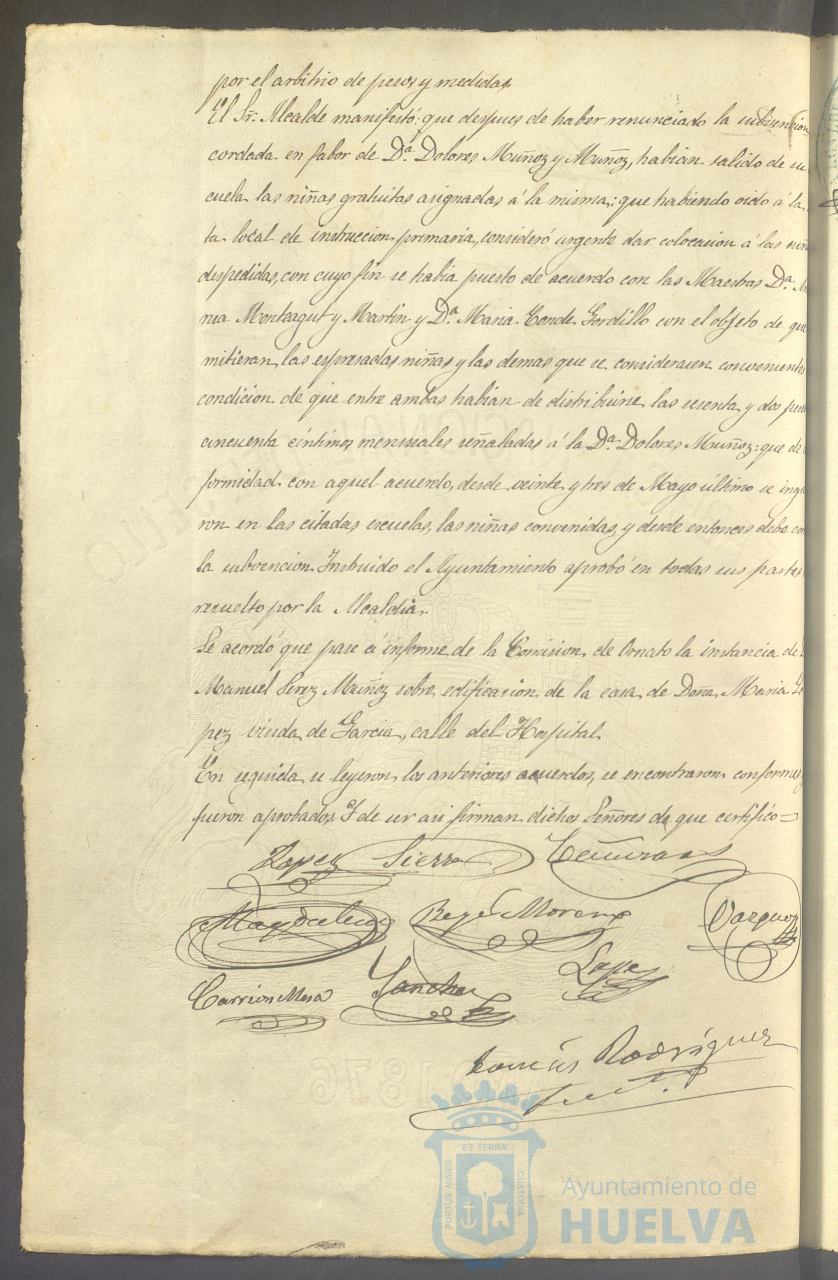 por el arbitrio de pesos y medidas.
El Sr. Alcalde manifestó: que despues de haber renunciado la subvencion
cordada en fabor de Dª Dolores Muñoz y Muñoz, habian salido de su
cuela las niñas gratuitas asignadas á la misma: que habiendo oido á la
ta local de instruccion primaria, consideró urgente dar colocacion á las niñ
despedidas, con cuyo fin se habia puesto de acuerdo con las Maestras Dª
nia Montagut y Martin y Dª Maria Conde Gordillo con el objeto de que
mitieran las espresadas niñas y las demas que se considerasen convenientes
condicion de que entre ambas habian de distribuirse las sesenta y dos pese
cincuenta céntimos mensuales señaladas á la Dª Dolores Muñoz: que de
formidad con aquel acuerdo, desde veinte y tres de Mayo último se ingre
ron en las citadas escuelas, las niñas convenidas, y desde entonces debe co
la subvencion. Instruido el Ayuntamiento aprobó en todas sus partes
resuelto por la Alcaldia.
Se acordó que pase á informe de la Comision de Ornato la instancia de
Manuel Perez Muñoz sobre edificacion de la casa de Doña Maria Lo
pez viuda de Garcia, calle del Hospital.
En seguida se leyeron los anteriores acuerdos, se encontraron conformes
fueron aprobados. Y de ser asi firman dichos Señores de que certifico=
Lopez Sierra
Magdalena Moreno Vazquez
Carrion Mesa Sanchez Lopez
Tomás Rodriguez
1876
ET TERRÆ
PORTUS MARIS
CUSTODIA
Ayuntamiento de
HUELVA